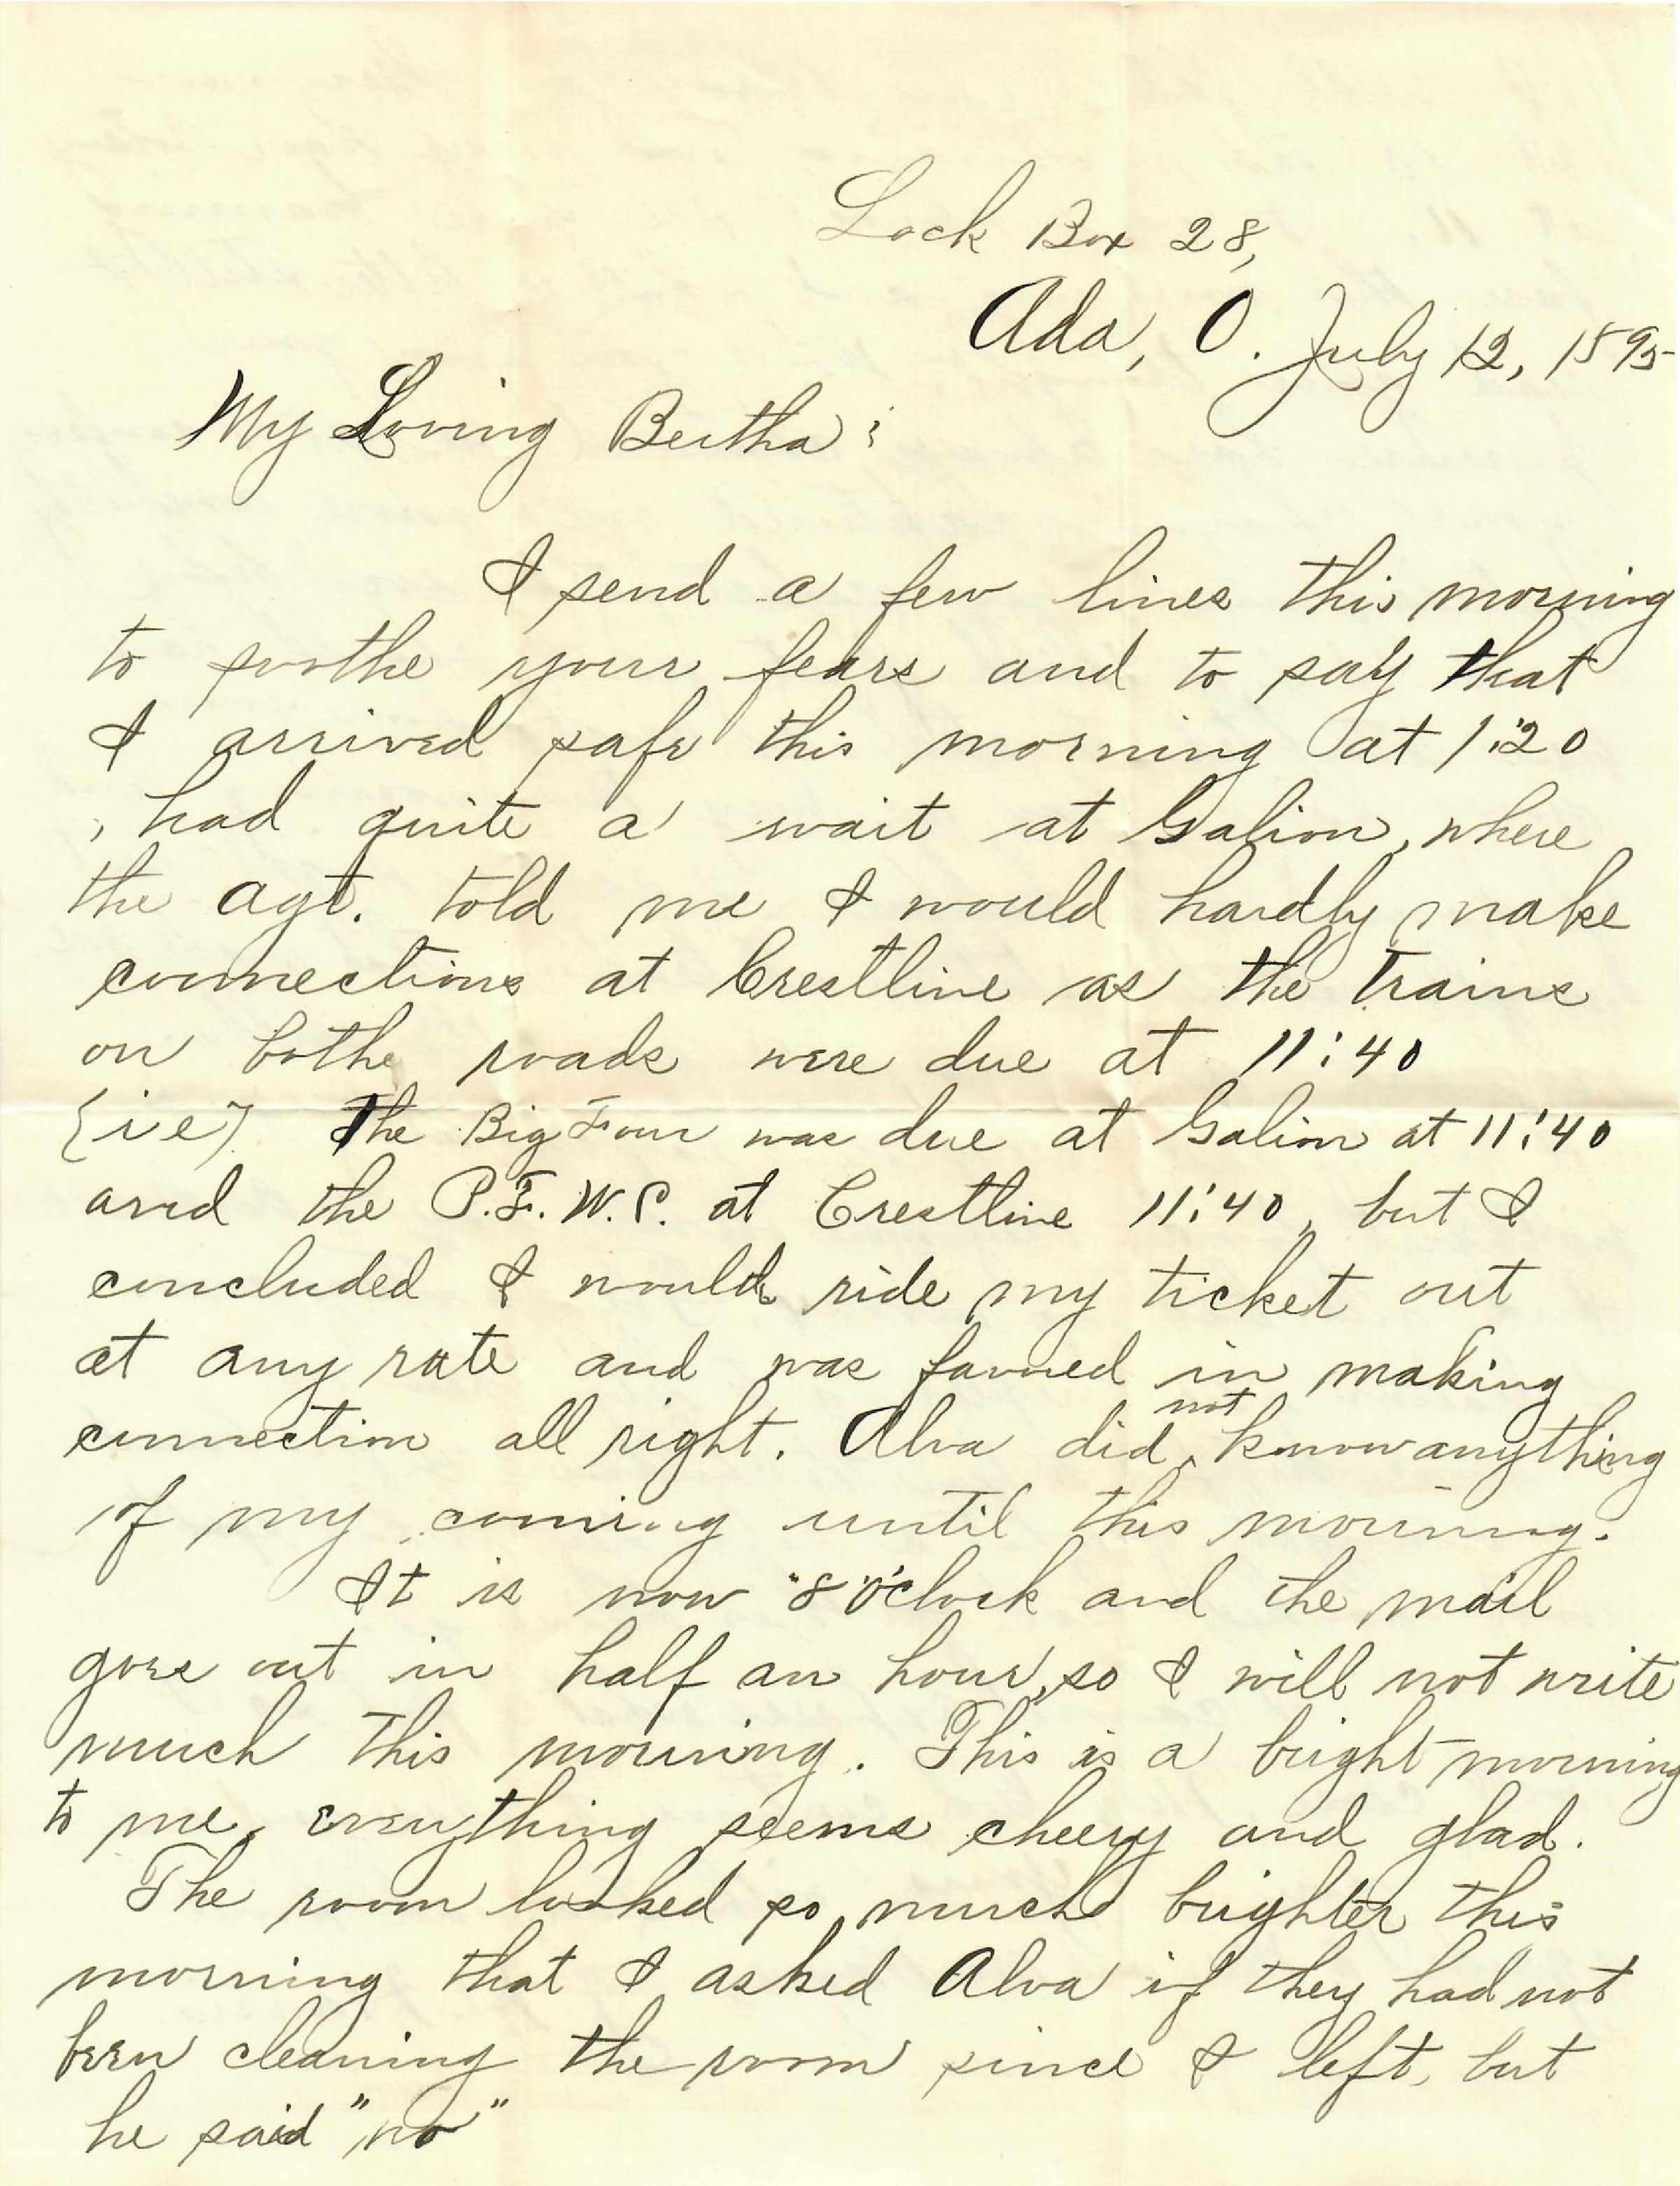 Lock Box 28,
Ada, O. July 12, 1895
My Loving Bertha:
I send a few lines this morning
to soothe your fears and to say that
I arrived safe this morning at 1:20
, had quite a wait at Galion, where
the agt. told me I would hardly make
connections at Crestline as the trains
on bothe roads were due at 11:40
{ie} The Big Four was due at Galion at 11:40
and the P.F.W.C. at Crestline 11:40, but I
concluded I would ride my ticket out
at any rate and was favored in making
connection all right. Alva did not know anything
of my coming until this morning.
It is now "8 o'clock and the mail
goes out in half an hour, so I will not write
much this morning. This is a bright morning
to me, everything seems cheery and glad.
The room looked so much brighter this
morning that I asked Alva if they had not
been cleaning the room since I left, but
he said "no"